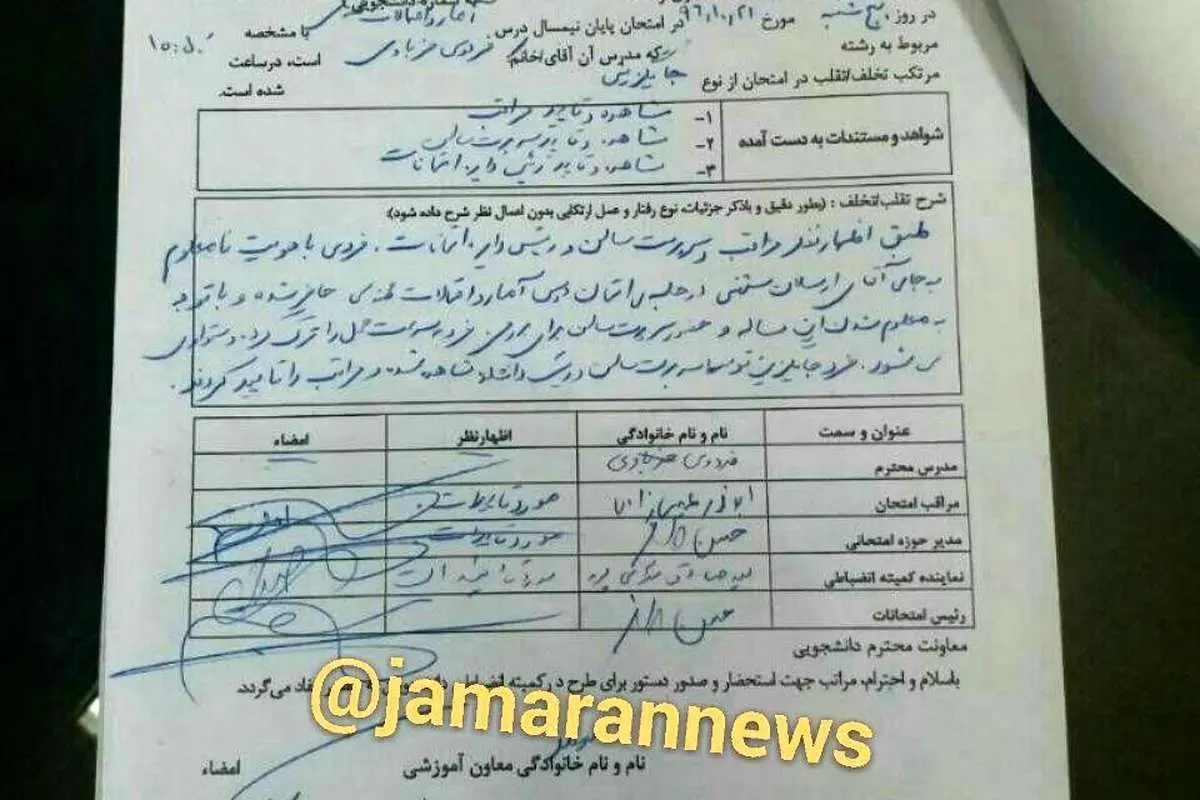 در روز پنج شنبه مورخ ۹۶/۱۰/۲۱ در امتحان پایان نیمسال درس آمار و احتمالات با مشخصه
مربوط به رشته که مدرس آن آقای/خانم: فردوس فرهادی است، درساعت ۱۰:۵۰
مرتکب تخلف/تقلب در امتحان از نوع جایگزینی شده است.
شواهد و مستندات به دست آمده
۱- مشاهده و تایید مراقب
۲- مشاهده و تایید سرپرست سالن
۳- مشاهده و تایید رئیس دایره امتحانات
شرح تقلب/تخلف : (بطور دقیق و باذکر جزئیات، نوع رفتار و عمل ارتکابی بدون اعمال نظر شرح داده شود):
طبق اظهارنظر مراقب و سرپرست سالن و رئیس دایره امتحانات، فردی با هویت نامعلوم
به جای آقای ارسلان در جلسه ی امتحان درس آمار و احتمالات مهندسی حاضر شده و با توجه
به معلوم شدن این مساله و حضور سرپرست سالن برای بررسی فرد به سرعت محل را ترک کرده و متواری
می شود. فرد جایگزین توسط سرپرست سالن مشاهده شده و مراتب را تایید کردند.
عنوان و سمت نام و نام خانوادگی اظهارنظر امضاء
مدرس محترم فردوس فرهادی
مراقب امتحان مورد تایید است
مدیر حوزه امتحانی حسن مورد تایید است
نماینده کمیته انضباطی مورد تایید است
رئیس امتحانات حسن
معاونت محترم دانشجویی
باسلام و احترام، مراتب جهت استحضار و صدور دستور برای طرح در کمیته انضباطی می‌گردد.
@jamarannews
نام و نام خانوادگی معاون آموزشی امضاء